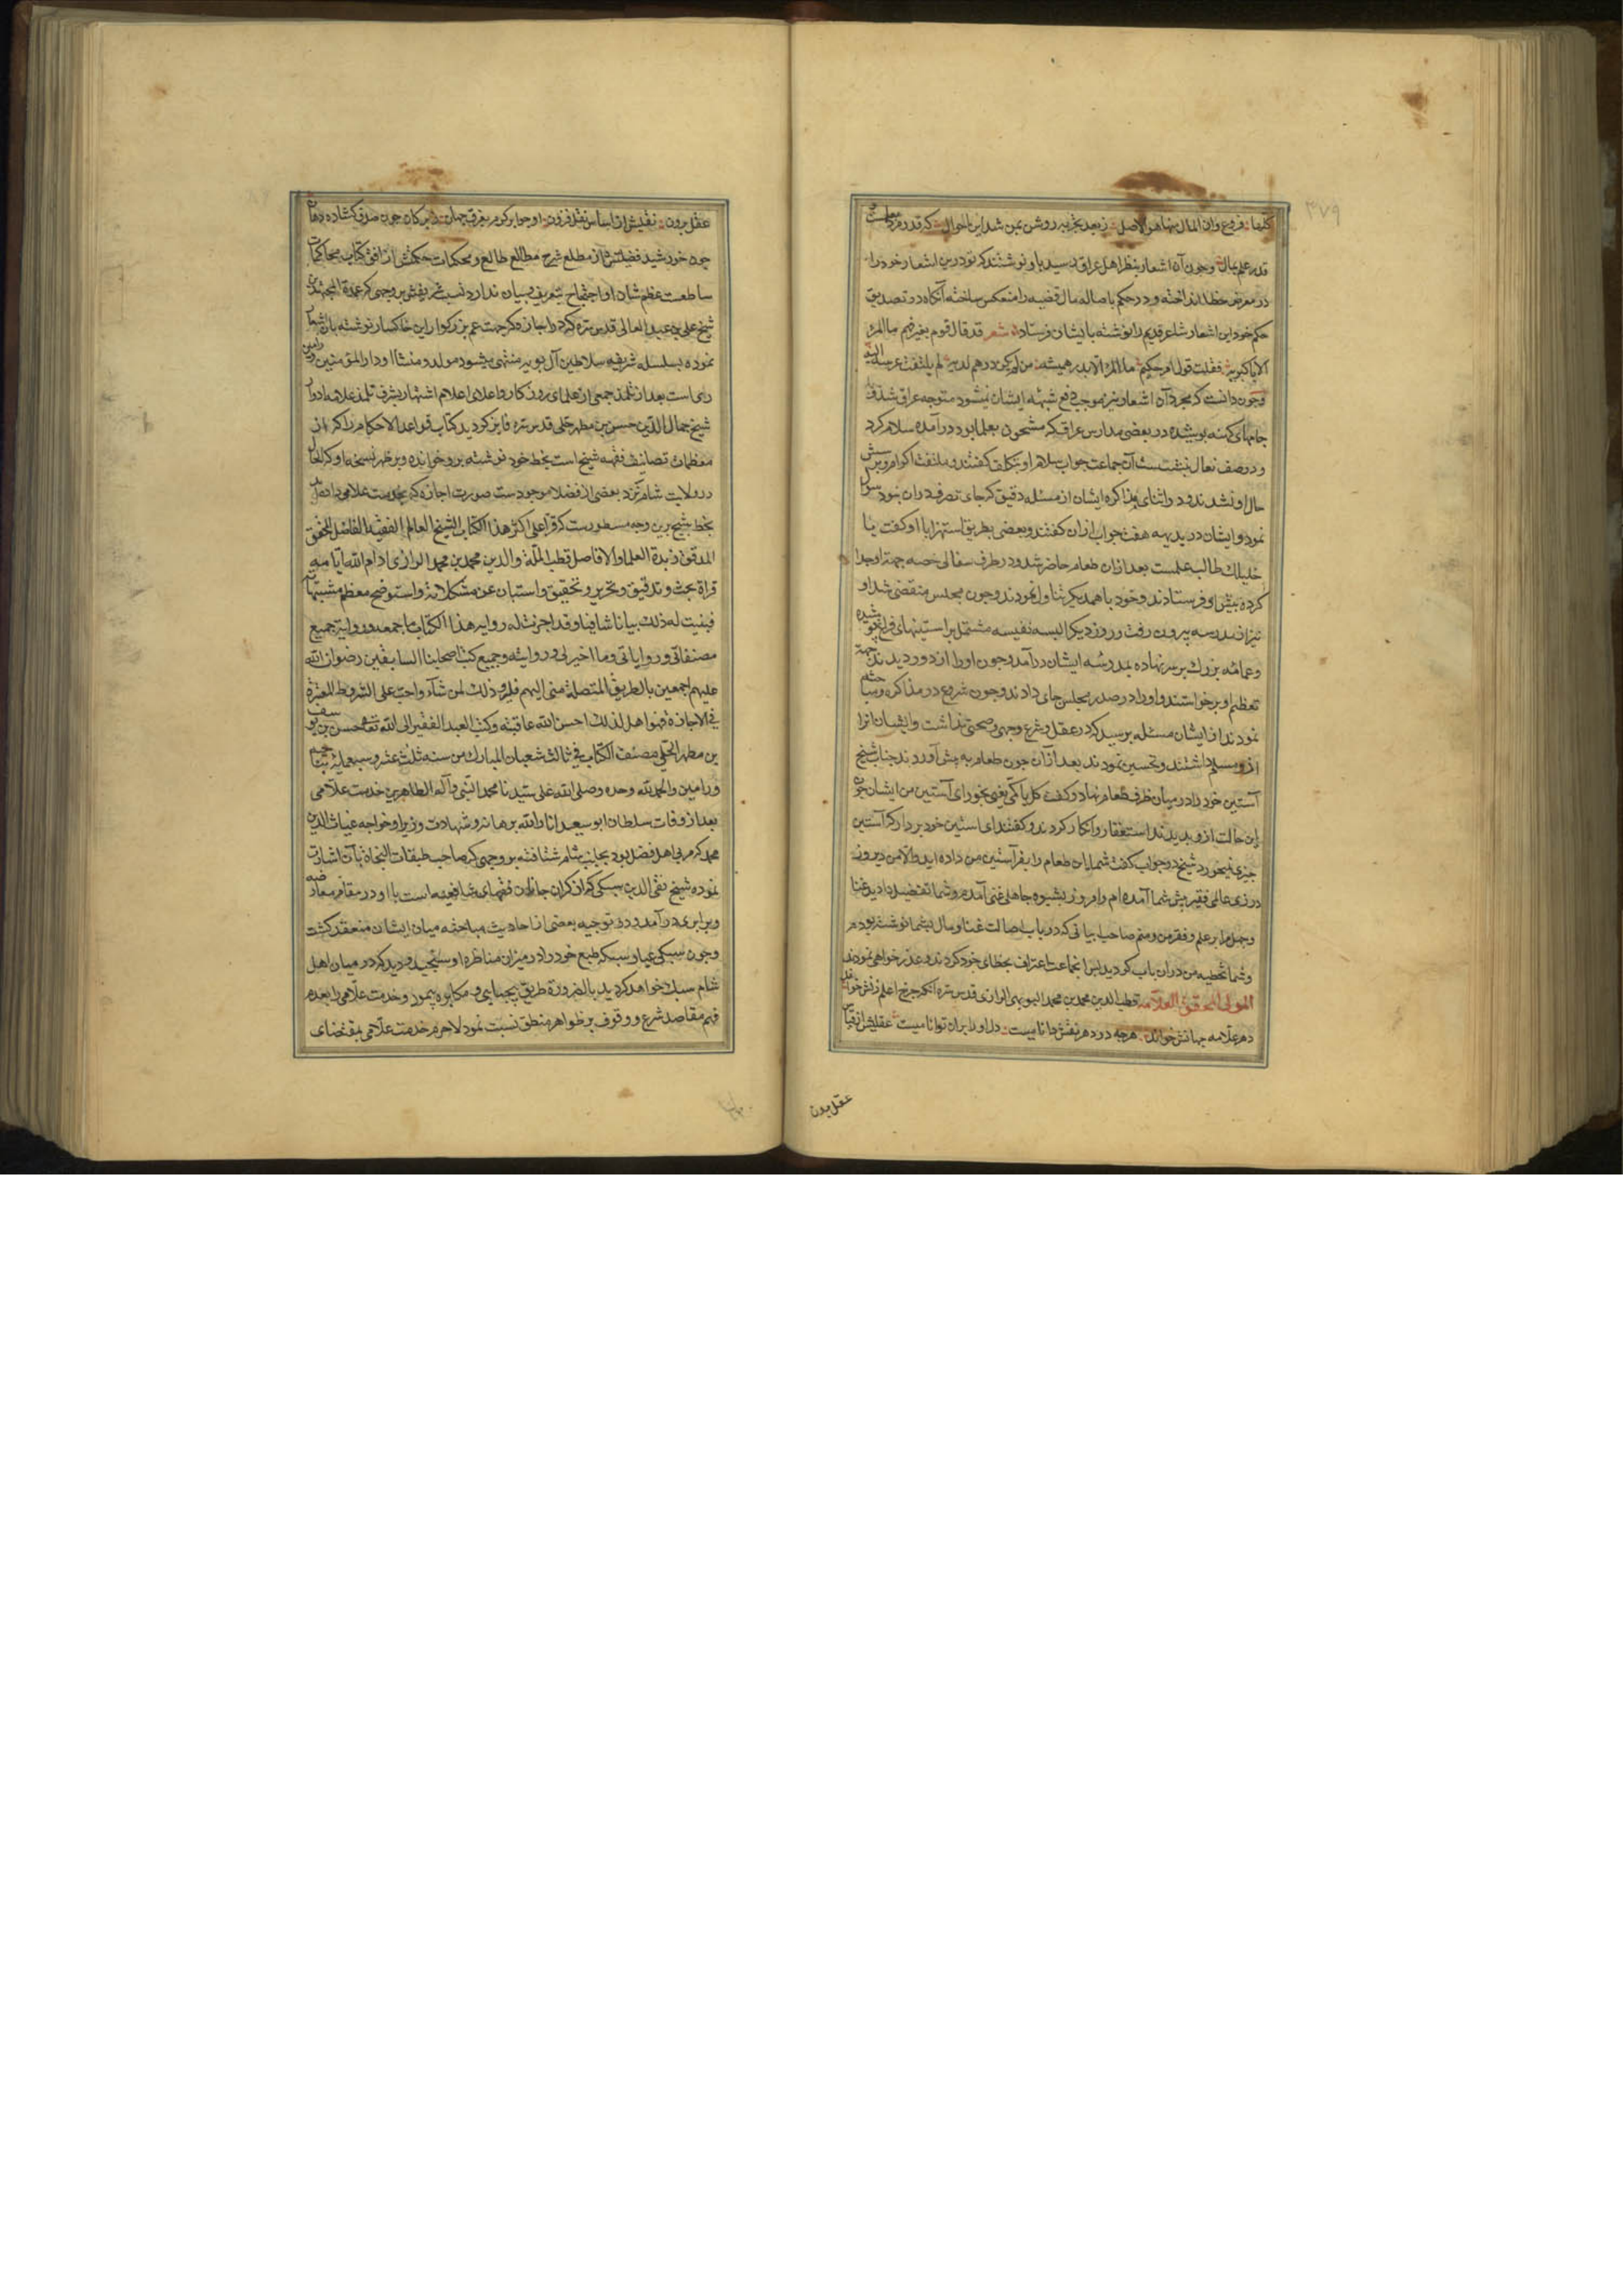 کلها فروع وان المال فیها هو الاصل زبعد تجربه روشن بمن شد این احوال که قدر مرد بعلمست و
قدر علم بمال وچون آن اشعار بنظر اهل عراق رسید باو نوشتند که تو درین اشعار خود را
در معرض خطا انداخته و در حکم باصاله مال قضیه را منعکس ساخته آنکاه در تصدیق
حکم خود این اشعار شاعر قدیم را نوشته بایشان فرستاد شعر قد قال قوم بغیر فهم ما المرء
الا باکبریه فقلت قول امرء حکیم ما المرء الا بدرهمیه من لم یکن درهم لدیه لم یلتفت عرسه الیه
وچون دانست که مجرد آن اشعار نیز موجب دفع شبهه ایشان نمیشود متوجه عراق شد و
جامهای کهنه پوشیده در بعضی مدارس عراق که مشحون بعلما بود درآمده سلام کرد
و در صف نعال بنشست آن جماعت جواب سلام او بتکلف کفتند و ملتفت اکرام و پرسش
حال او نشدند و در اثنای مذاکره ایشان از مسئله دقیق که جای تصرف در آن بود سوال
نمود و ایشان در بدیهه هفت جواب از آن کفتند و بعضی بطریق استهزا با او کفت یا
خلیلک طالب علمست بعد ازان طعام حاضر شد و در ظرف سفالی حصه جهة او جدا
کرده پیش او فرستادند و خود با همدیکر تناول نمودند و چون مجلس منقضی شد او
نیز از مدرسه بیرون رفت و روز دیکر البسه نفیسه مشتمل بر استینهای فراخ پوشیده
و عمامه بزرک بر سر نهاده بمدرسه ایشان درآمد وچون او را از دور دیدند جهة
تعظیم او برخواستند و او را در صدر مجلس جای دادند وچون شروع در مذاکره و مباحثه
نمودند از ایشان مسئله پرسید که در عقل و شرع وجهی و صحتی نداشت و ایشان انرا
ازو مسلم داشتند و تحسین نمودند بعد ازان چون طعام به پیش آوردند جناب شیخ
آستین خود را در میان ظرف طعام نهاد و کفت کل یا کمی یعنی بخور ای آستین من ایشان چون
این حالت ازو بدیدند استغفار و انکار کردند و کفتند ای استین خود بردار که آستین
چیزی نمیخورد شیخ در جواب کفت شما این طعام را بفر آستین من داده اید والا من دیروز
در زی عالمی فقیر پیش شما آمده ام و امروز بشیوه جاهلی غنی آمدم و شما تفضیل دادید غنا
و جهل را بر علم و فقر من و منم صاحب ابیاتی که در باب اصالت غنا و مال بشما نوشته بودم
و شما تخطیه من دران باب کردید پس انجماعت اعتراف بخطای خود کردند و عذر خواهی نمودند
المولی المحقق العلامة قطب الدین محمد بن محمد البویهی الرازی قدس سره آنکه چرخ اعلم زمنش خواند
دهر علامه جهانش خواند هرچه در دهر نقش دانائیست دل او را بران توانائیست عقلش از قیاس
عقل برون
عقل برون نقدش از اساس نقل فزون او جواهر کرم بفرق جهان دایر کان چون صدف کشاده دهان
چون خورشید فضیلتش از مطلع شرح مطالع طالع و محکمات حکمتش از افق کتاب محاکمات
ساطعست عظم شان او احتیاج بتعریف و بیان ندارد نسب شریفش بر وجهی که عمدة المجتهدین
شیخ علی بن عبد العالی قدس سره که در اجازه که جهت عم بزرکوار این خاکسار نوشته بان اشعار
نموده بسلسله شریفه سلاطین آل بویه منتهی میشود مولد و منشاء او دار المؤمنین ورامین
ری است بعد از تلمذ جمعی از علمای روزکار و اعلای اعلام اشتهار بشرف تلمذ علامه ادوار
شیخ جمال الدین حسن بن مطهر حلی قدس سره فایز کردید کتاب قواعد الاحکام را که از
معظمات تصانیف فقه شیخ است بخط خود نوشته برو خوانده و بر ظهر نسخه او که الحال
در ولایت شام نزد بعضی از فضلا موجودست صورت اجازه که بخدمت علامی داده
بخط شیخ برین وجه مسطورست که قرأ علی اکثر هذا الکتاب الشیخ العالم الفقیه الفاضل المحقق
المدقق زبدة العلما والافاضل قطب الملة والدین محمد بن محمد الرازی ادام الله ایامه
قراة بحث و تدقیق و تحریر و تحقیق واستبان عن مشکلاته واستوضح معظم مشتبهاته
فبینت له ذلک بیانا شافیا وقد اجزت له روایة هذا الکتاب باجمعه وروایة جمیع
مصنفاتی وروایاتی وما اجیز لی روایته وجمیع کتب اصحابنا السابقین رضوان الله
علیهم اجمعین بالطریق المتصلة منی الیهم فلیرو ذلک لمن شآء واحب علی الشروط المعتبرة
فی الاجازة فهو اهل لذلک احسن الله عاقبته وکتب العبد الفقیر الی الله تعالی حسن بن یوسف
بن مطهر الحلی مصنف الکتاب فی ثالث شعبان المبارک من سنه ثلث عشر وسبعمایه بناحیة
ورامین والحمد لله وحده وصلی الله علی سیدنا محمد النبی وآله الطاهرین خدمت علامی
بعد از وفات سلطان ابو سعید انار الله برهانه و شهادت وزیر او خواجه غیاث الدین
محمد که مربی اهل فضل بود بجانب شام شتافته بر وجهی که صاحب طبقات النحاة بآن اشارت
نموده شیخ تقی الدین سبکی که از کران جانان فقهای شافعیه است با او در مقام معارضه
و برابری درآمد و در توجیه بعضی از احادیث مباحثه میان ایشان منعقد کشت
وچون سبکی عیار سبکه طبع خود را در میزان مناظره او سنجید و دید که در میان اهل
شام سبک خواهد کردید بالضرورة طریق بیحیایی و مکابره پیمود و خدمت علامی را بعدم
فهم مقاصد شرع و وقوف بر ظواهر منطق نسبت نمود لاجرم خدمت علامی بمقتضای